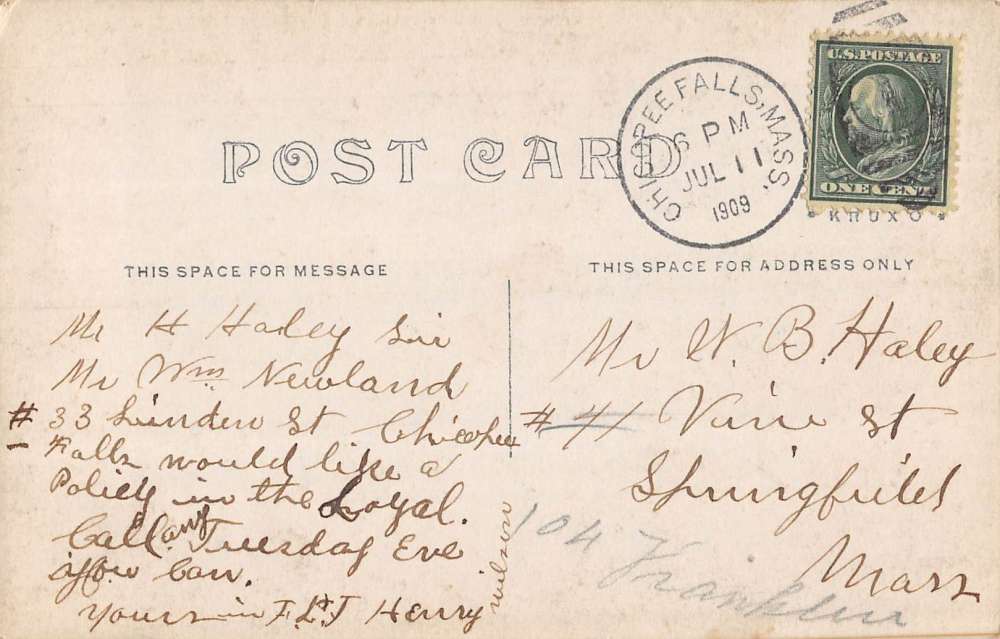 U.S. POSTAGE
ONE CENT
CHICOPEE FALLS, MASS.
6 PM
JUL 11
1909
POST CARD
* KRUXO *
THIS SPACE FOR MESSAGE
THIS SPACE FOR ADDRESS ONLY
Mr H Haley Sir
Mr Wm Newland
# 33 Linden St Chicopee
Falls would like a
Policy in the Loyal.
Call any Tuesday Eve
if you Can.
Yours in F.L&T Henry
Wilson
Mr W. B. Haley
# 41 Vine St
Springfield
Mass
104 Franklin